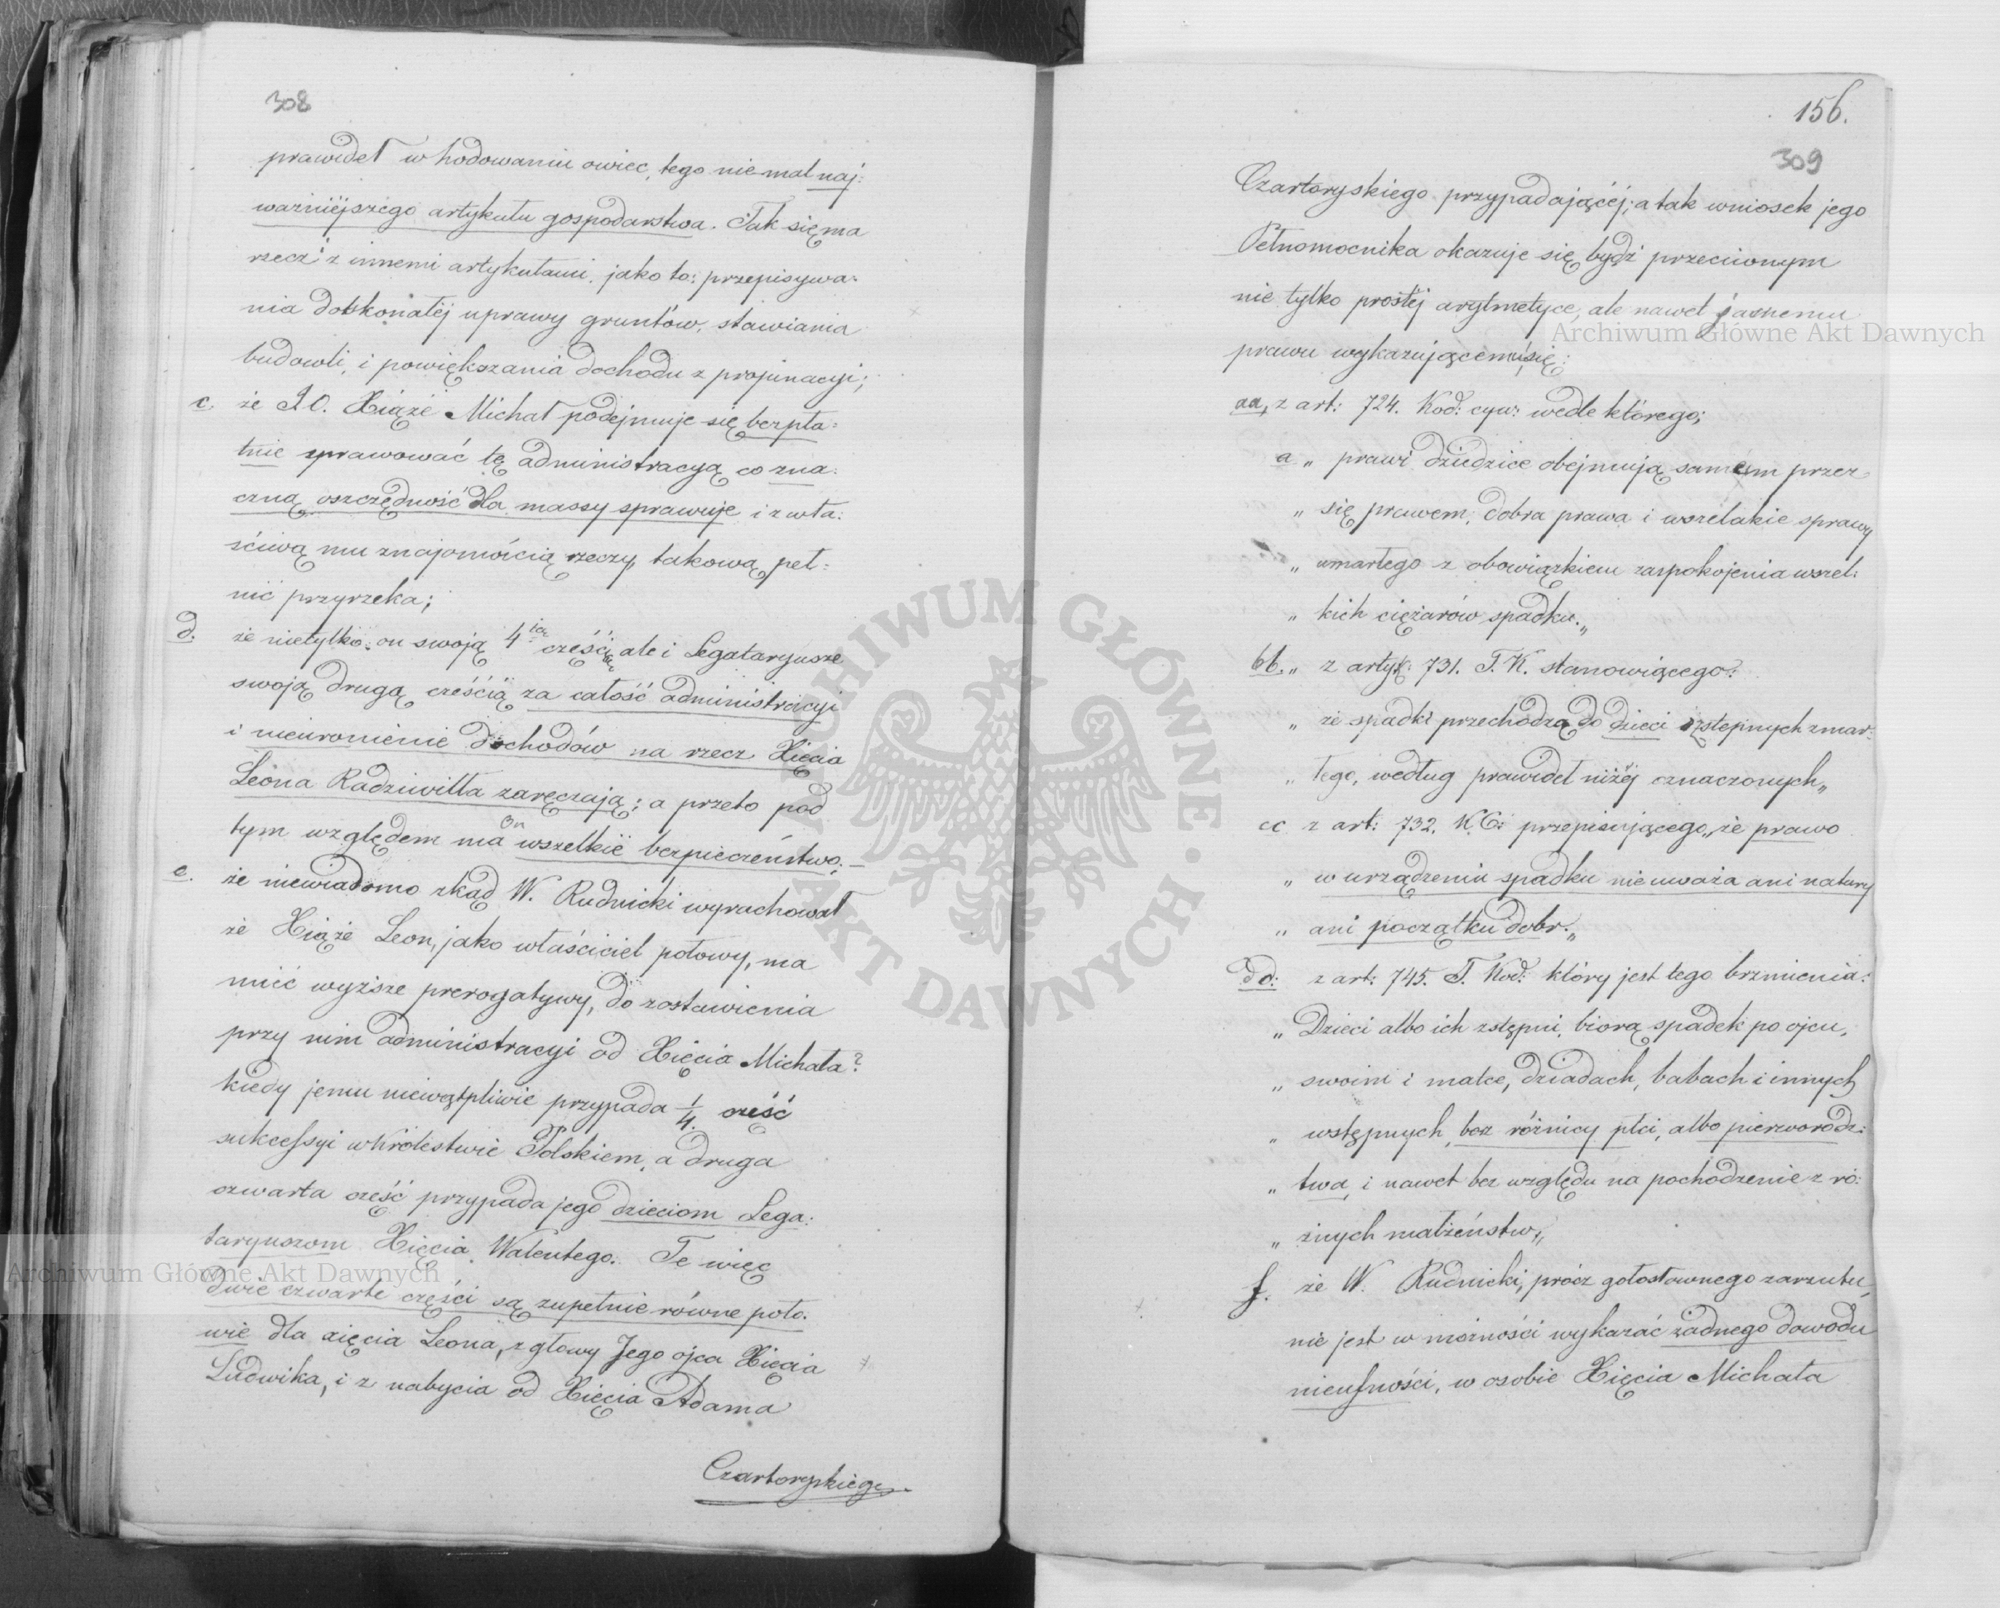 308
prawideł w hodowaniu owiec, tego niemal naj:
ważniejszego artykułu gospodarstwa. Tak się ma
rzecz z innemi artykułami, jako to: przepisywa:
nia doskonałéj uprawy gruntów, stawiania
budowli, i powiększania dochodu z propinacyi;
c. że J.O. Xiąże Michał podejmuje się bezpła:
tnie sprawować tę administracyą co zna:
czną oszczędność dla massy sprawuje i z wła:
ściwą mu znajomością rzeczy, takową peł:
nić przyrzeka;
d. że nietylko on swoją 4tą część, ale i Legataryusze
swoją drugą częścią za całość administracyi
i nieuronienie dochodów na rzecz Xięcia
Leona Radziwiłła zaręczają; a przeto pod
tym względem ma On wszelkie bezpieczeństwo;
e. że niewiadomo zkąd W. Rudnicki wyrachował
że Xiąże Leon, jako właściciel połowy, ma
mieć wyższe prerogatywy, do zostawienia
przy nim administracyi od Xięcia Michała?
kiedy jemu niewątpliwie przypada 1/4. część
sukcessyi w Królestwie Polskiem, a druga
czwarta część przypada jego dzieciom Lega:
taryuszom Xięcia Walentego. Te więc
dwie czwarte części są zupełnie równe poło:
wie dla xięcia Leona, z głowy Jego ojca Xięcia
Ludwika, i z nabycia od Xięcia Adama
Czartoryskiego.
156.
309
Czartoryskiego przypadającéj; a tak wniosek jego
Pełnomocnika okazuje się bydź przeciwnym
nie tylko prostéj arytmetyce, ale nawet jasnemu
prawu wykazującemu się:
aa, z art: 724. Kod: cyw: wedle którego;
a „ prawi dziedzice obejmują samem przez
„ się prawem, dobra prawa i wszelakie sprawy
„ umarłego z obowiązkiem zaspokojenia wszel:
„ kich ciężarów spadku.„
bb. „ z artyk: 731. T. K. stanowiącego?
„ że spadki przechodzą do dzieci zstępnych zmar:
„ łego, według prawideł niżéj oznaczonych„
cc z art: 732. K.C: przepisującego„ że prawo
„ w urządzeniu spadku nie uważa ani natury
„ ani początku dobr.„
dd: z art: 745. T. Kod: który jest tego brzmienia:
„ Dzieci albo ich zstępni, biorą spadek po ojcu,
„ swoim i matce, dziadach, babach i innych
„ wstępnych, bez różnicy płci, albo pierworodz:
„ twa, i nawet bez względu na pochodzenie z ró:
„ żnych małżeństw„
f. że W. Rudnicki, prócz gołosłownego zarzutu,
nie jest w możności wykazać żadnego dowodu
nieufności, w osobie Xięcia Michała
Archiwum Główne Akt Dawnych
Archiwum Główne Akt Dawnych
ARCHIWUM GŁÓWNE · AKT DAWNYCH ·